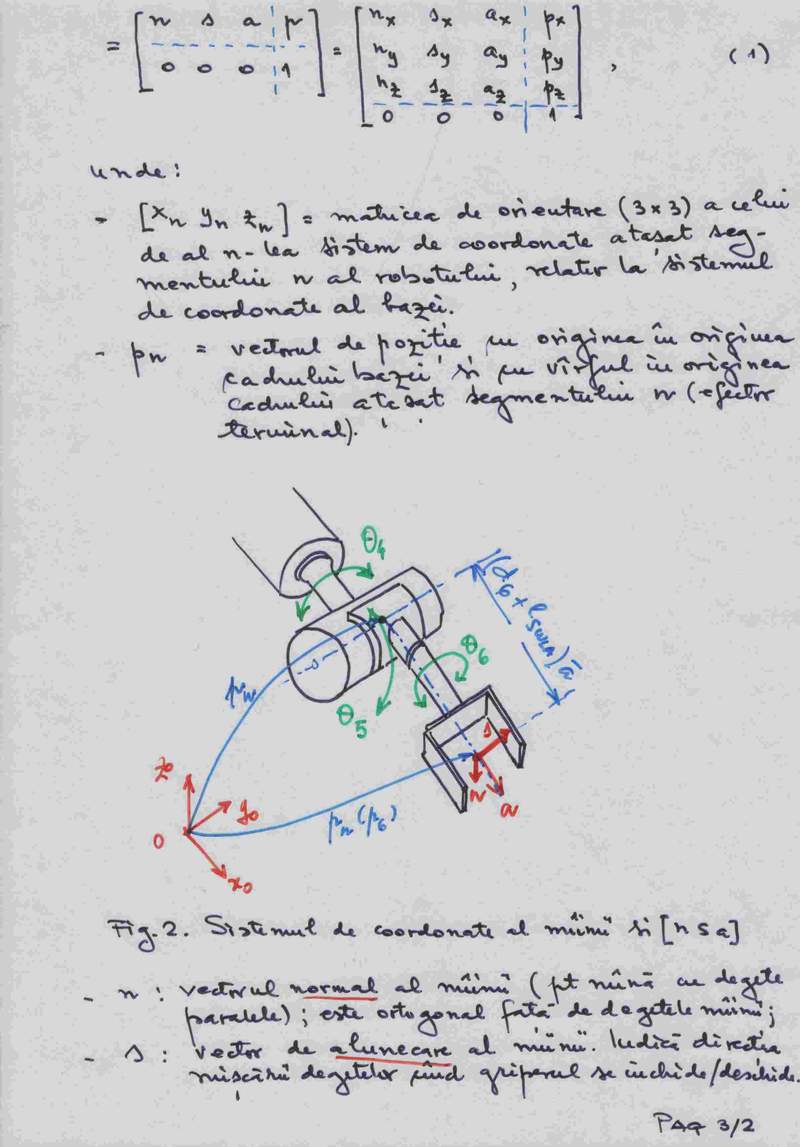 = [ n s a p ; 0 0 0 1 ] = [ nx sx ax px ; ny sy ay py ; nz sz az pz ; 0 0 0 1 ] , (1)
unde:
- [xn yn zn] = matricea de orientare (3x3) a celui
de al n-lea sistem de coordonate atașat seg-
mentului n al robotului, relativ la sistemul
de coordonate al bazei.
- pn = vectorul de poziție cu originea în originea
cadrului bazei și cu vîrful în originea
cadrului atașat segmentului n (efector
terminal).
θ4
(d6 + lscula) ā
θ6
pw
θ5
z0
s
y0
n
a
pn (p6)
0
x0
Fig. 2. Sistemul de coordonate al mîinii și [n s a]
- n : vectorul normal al mîinii (pt mînă cu degete
paralele); este ortogonal față de degetele mîinii;
- s : vector de alunecare al mîinii. Indică direcția
mișcării degetelor cînd griperul se închide/deschide.
PAG 3/2